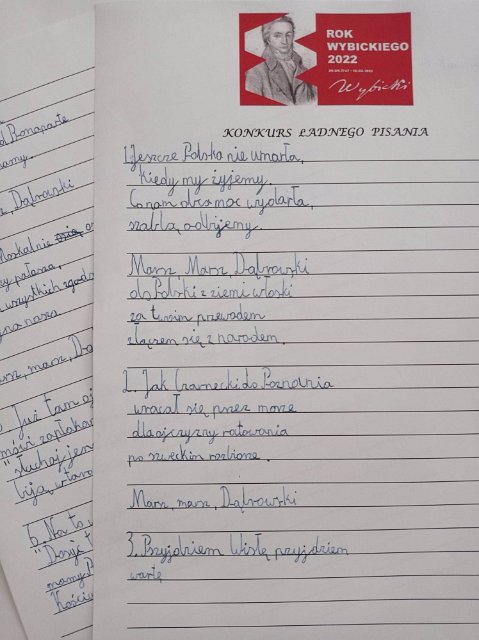 ROK
WYBICKIEGO
2022
Wybicki
KONKURS ŁADNEGO PISANIA
1. Jeszcze Polska nie umarła,
Kiedy my żyjemy.
Co nam obca moc wydarła,
szablą odbijemy.
Marsz, Marsz, Dąbrowski
do Polski z ziemi włoski
za twoim przewodem
złączem się z narodem.
2. Jak Czarnecki do Poznania
wracał się przez morze
dla ojczyzny ratowania
po szweckim rozbiorze.
Marsz, marsz, Dąbrowski
3. Przyjdziem Wisłę przyjdziem
wartę
Bonaparte
amy.
Dąbrowski
Moskal nie
palasza,
wszystkich zgoda
nasza
marsz, Dą
Już tam oj
mówi zapłakan
"słuchaj jen
biją w tara
6. Na to
"Dosyć t
mamy
Kościu